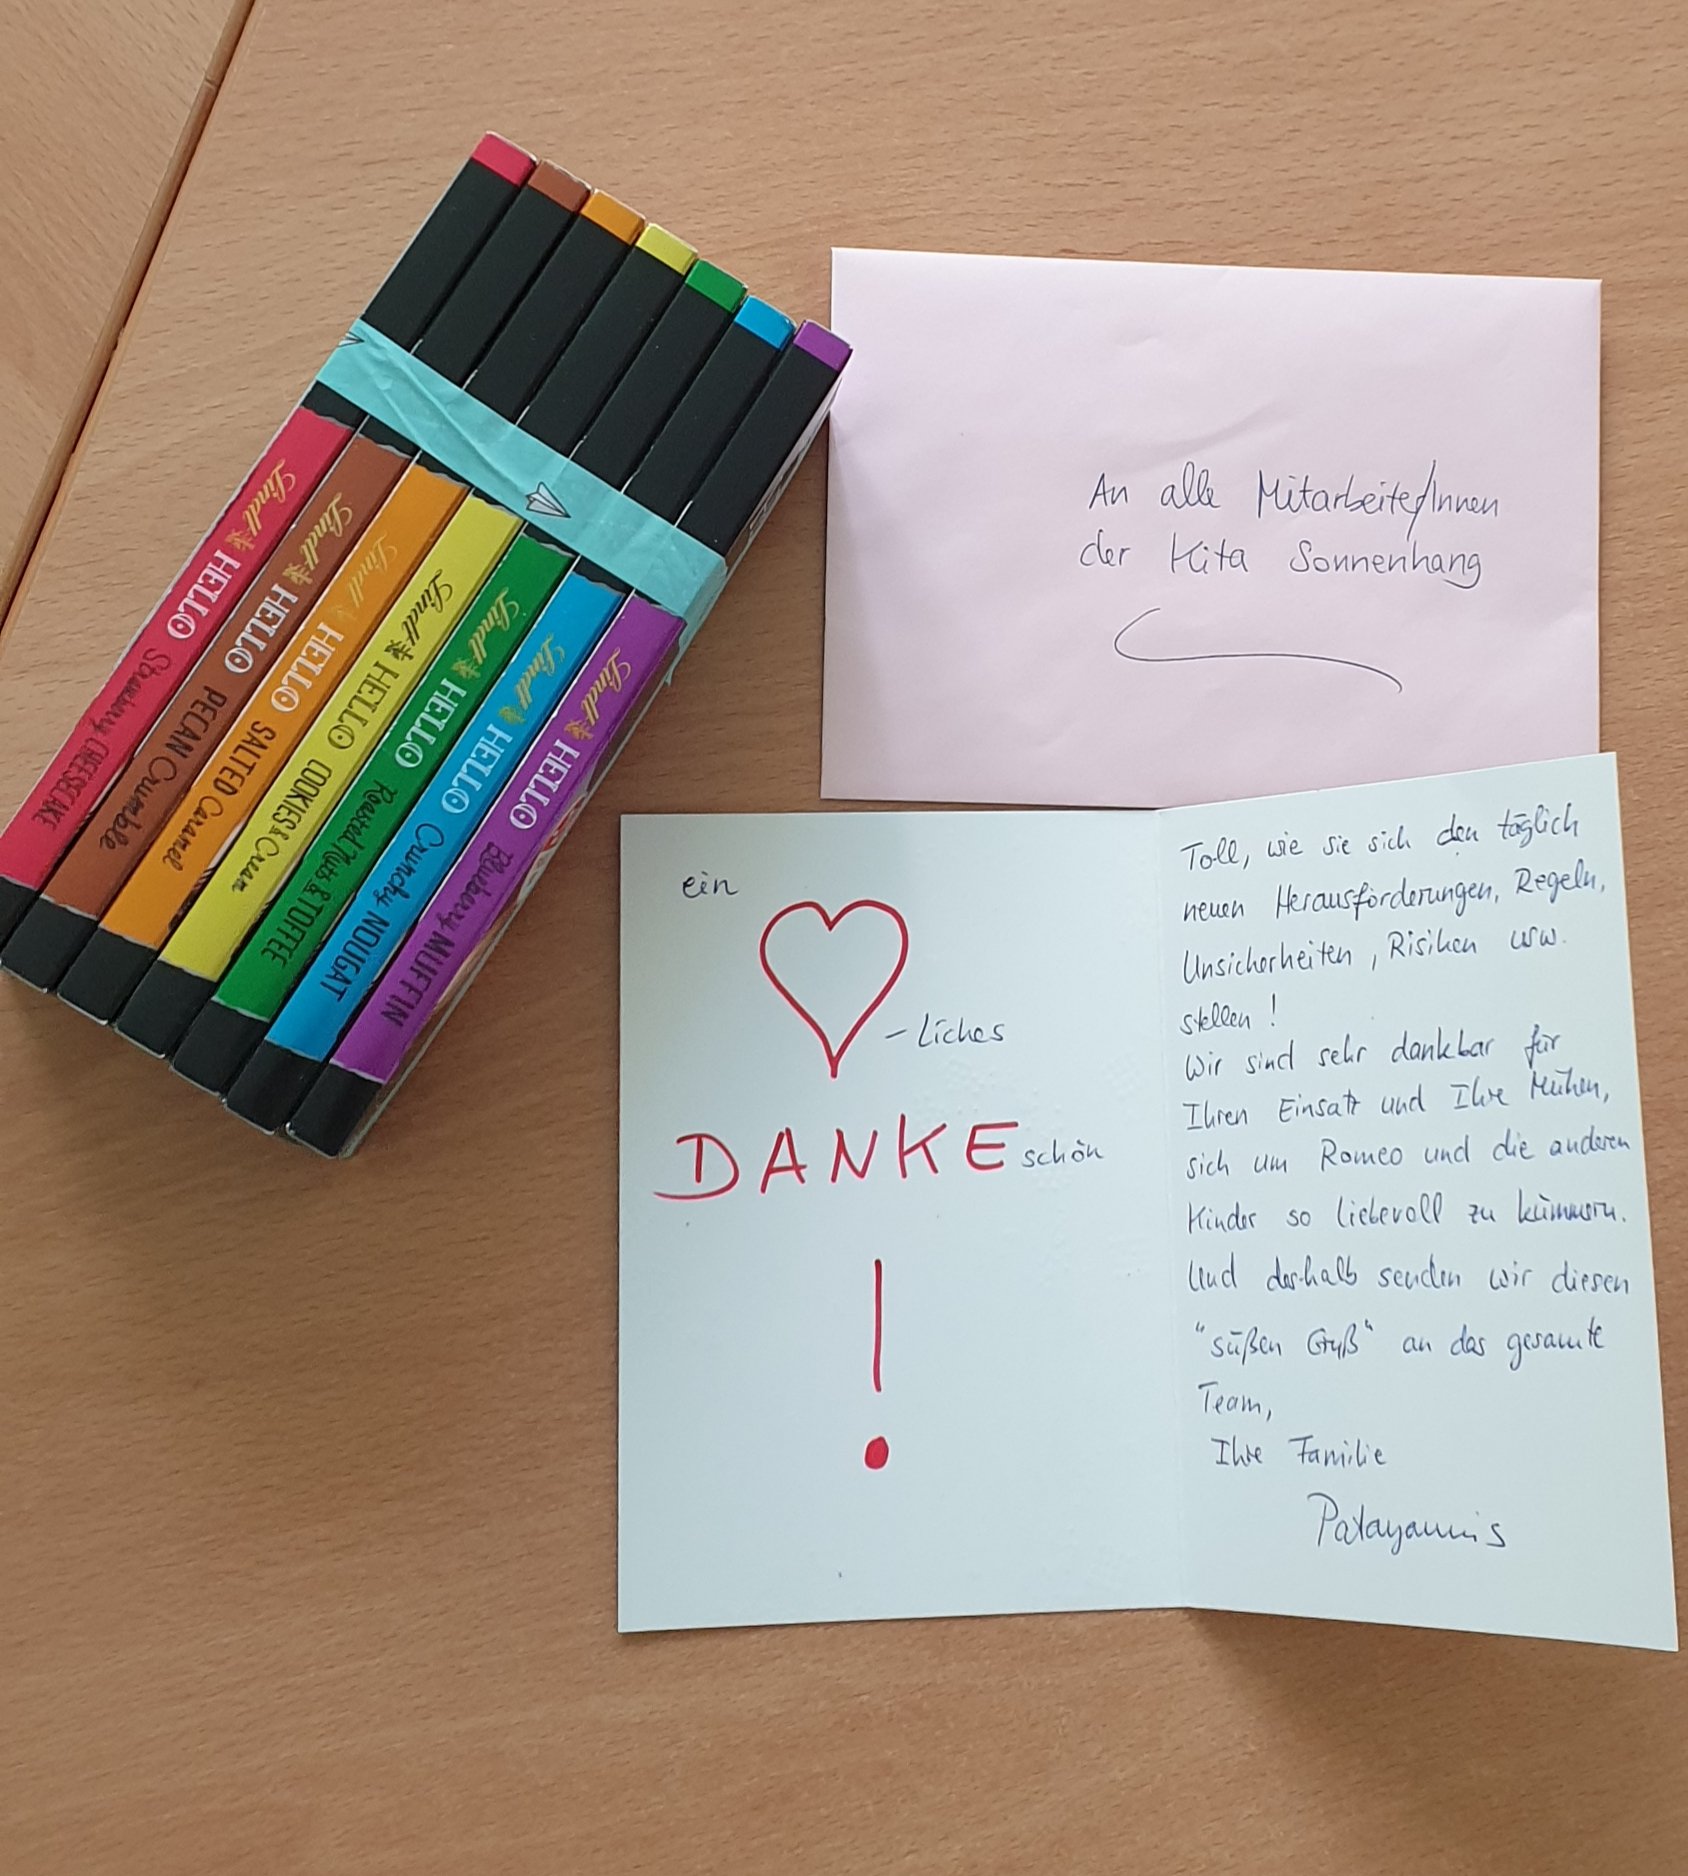 Lindt HELLO Strawberry CHEESECAKE
Lindt HELLO PECAN Crumble
Lindt HELLO SALTED Caramel
Lindt HELLO COOKIES & Cream
Lindt HELLO Roasted Nuts & TOFFEE
Lindt HELLO Crunchy NOUGAT
Lindt HELLO Blueberry MUFFIN
An alle Mitarbeiter/Innen
der Kita Sonnenhang
ein
-liches
DANKE schön
!
Toll, wie sie sich den täglich
neuen Herausforderungen, Regeln,
Unsicherheiten, Risiken usw.
stellen!
Wir sind sehr dankbar für
Ihren Einsatz und Ihre Mühen,
sich um Romeo und die anderen
Kinder so liebevoll zu kümmern.
Und deshalb senden wir diesen
"süßen Gruß" an das gesamte
Team,
Ihre Familie